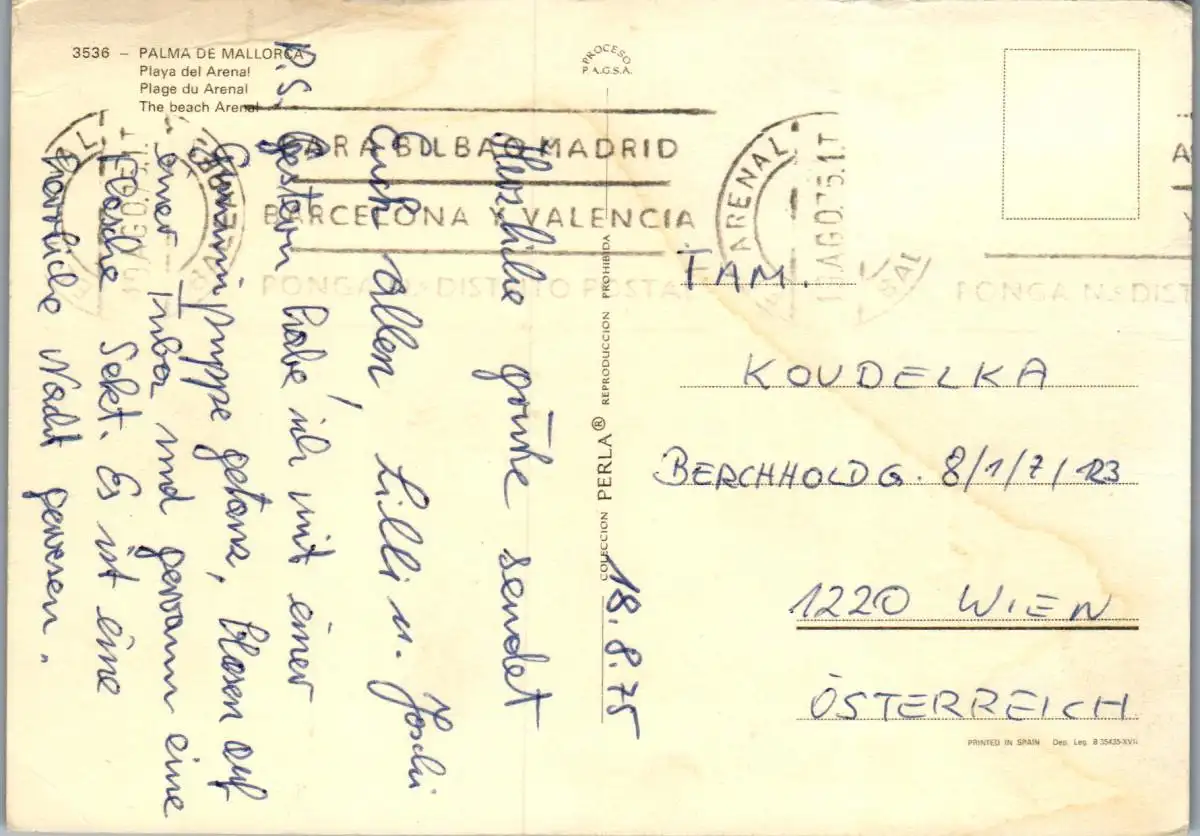 3536 – PALMA DE MALLORCA
Playa del Arenal
Plage du Arenal
The beach Arenal
PROCESO
P.A.G.S.A.
PARA BILBAO MADRID
BARCELONA Y VALENCIA
PONGA N.º DISTRITO POSTAL
ARENAL
AGO.75.1.T
PONGA N.º DIST
Herzliche grüße sendet
Euch allen, Lilli u. Joschi
P.S. Gestern habe ich mit einer
Gummipuppe getanz, blasen auf
einer Tuba und gewann eine
Flasche Sekt. Es ist eine
herrliche Nacht gewesen.
COLECCION PERLA® REPRODUCCION PROHIBIDA
18.8.75
FAM.
KOUDELKA
BERCHHOLDG. 8/1/7/123
1220 WIEN
ÖSTERREICH
PRINTED IN SPAIN Dep. Leg. B 35435-XVII